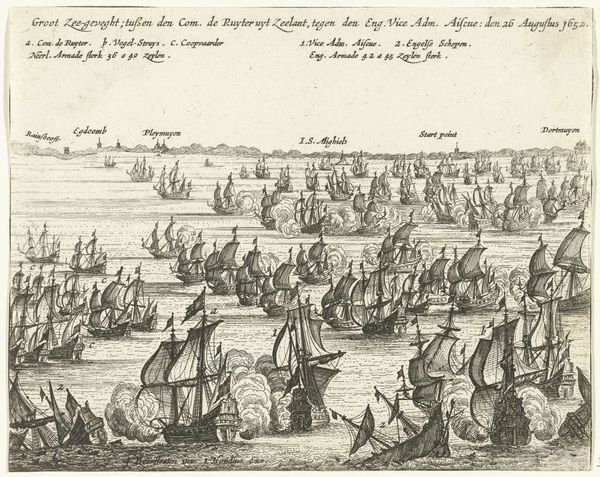 Groot Zee-geveght; tußen den Com. de Ruyter uyt Zeelant, tegen den Eng. Vice Adm. Aiscue: den 26 Augustus 1652.
a. Com. de Ruyter. b. Vogel-Struys. c. Coopvaarder 1. Vice Adm. Aiscue. 2. Engelse Schepen.
Neerl. Armade sterk 36 a 40 zeylen. Eng. Armade 42 a 45 Zeylen sterk.
Egdoomb Pleymuyen I.S. Start point Dortmuyen
a 1
c
2